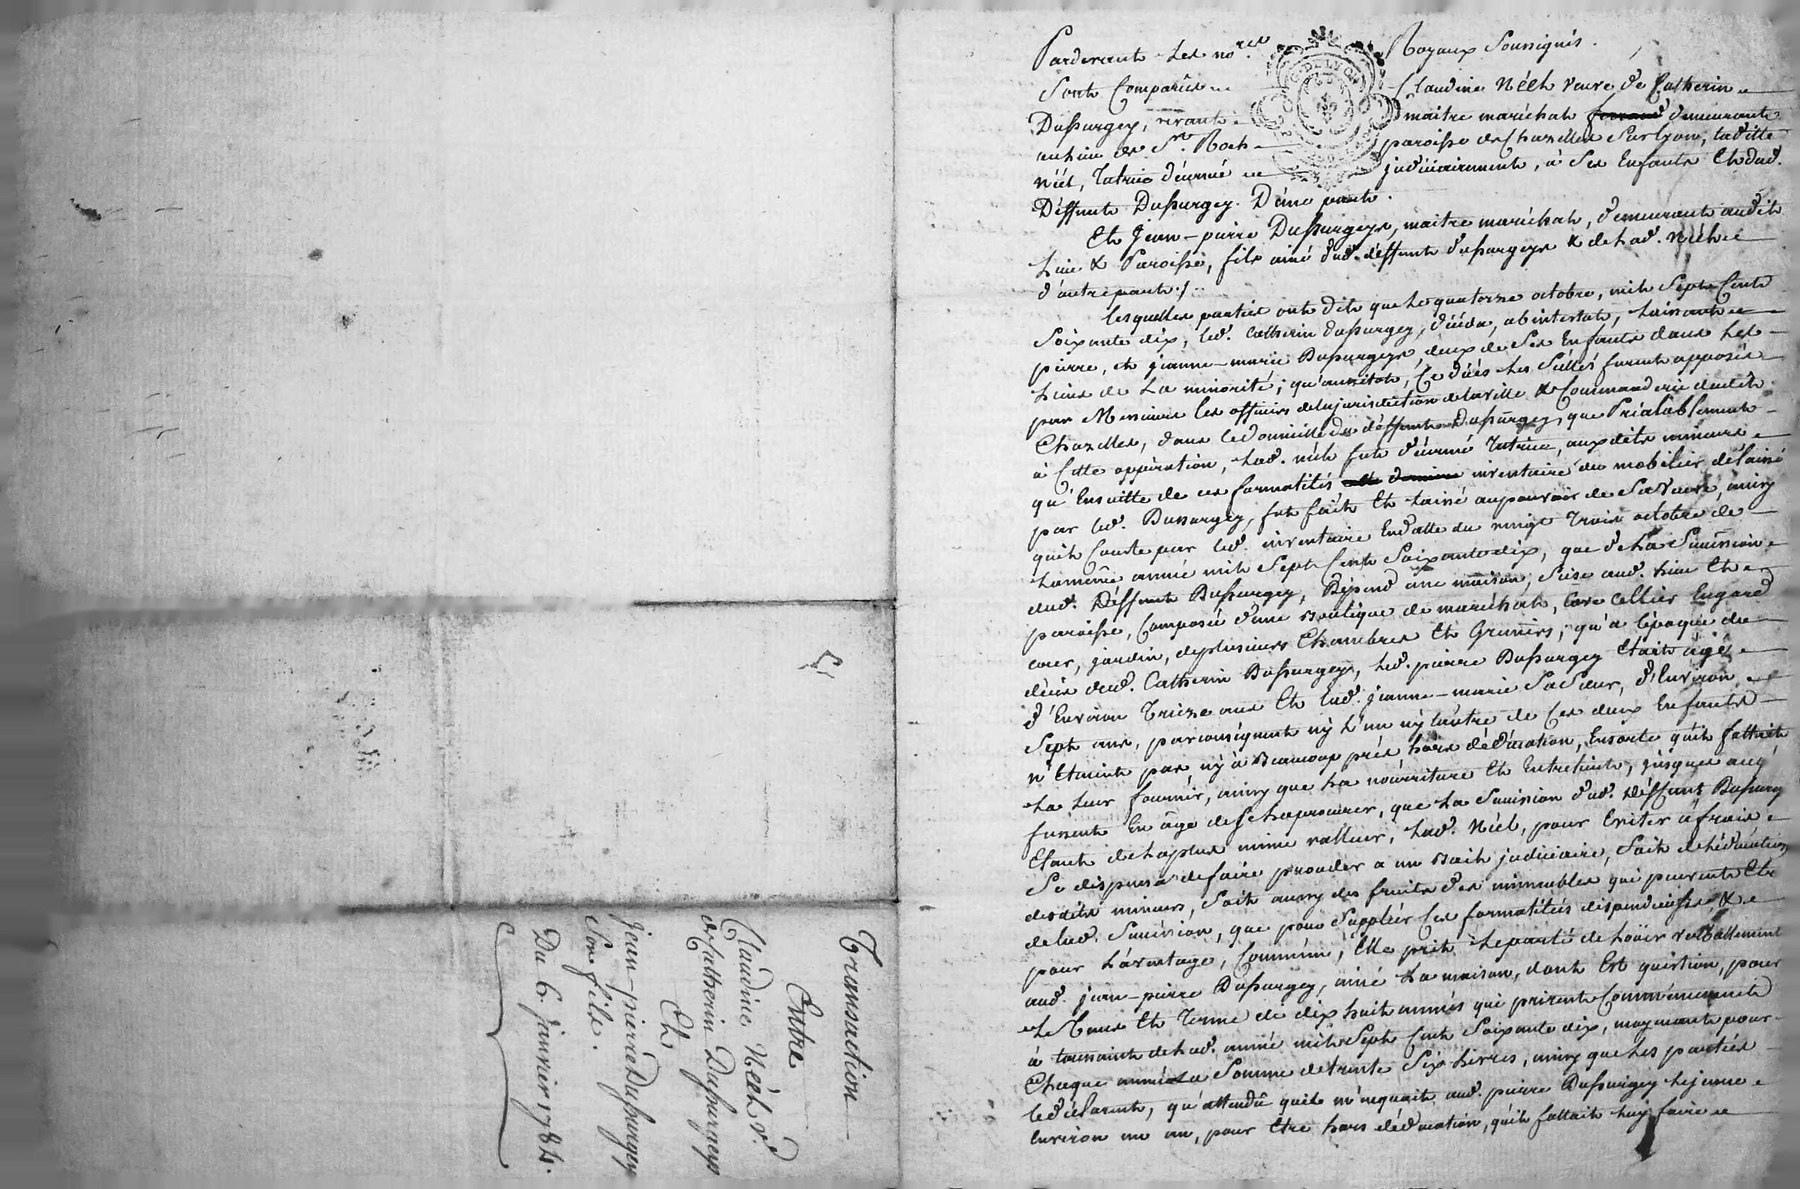 Transaction
Entre
Claudine Néel v.e
de Catherin Dussurgeys
Et
Jean-pierre Dussurgey
Son fils.
Du 6. janvier 1784.
Pardevant Les no.res Royaux Soussignés.
G. DE LYON
Sont Comparus Claudine Néel veuve de Catherin
Dussurgey, vivant maitre maréchal ferrand demeurante
au lieu de S.t Roch paroisse de Chazelles Sur lyon, laditte
Néel, Tutrice décernée judiciairement, à Ses Enfants Et dud.
Déffunt Dussurgey. D'une part.
Et Jean-pierre Dussurgeys, maitre maréchal, demeurant audit
Lieu & Paroisse, fils ainé dud. déffunt dussurgeys & de lad. Néel
d'autre part./.
lesquelles parties ont dit que Le quatorze octobre, mil Sept Cent
Soixante dix, led. Catherin dussurgey, décéda, abintestat, laissant
pierre, et jeanne-marie Dussurgeys, deux de Ses Enfants dans Les
Liens de La minorité; qu'aussitot, Ce décés Les Scéllés furent apposés
par Messieurs les officiers de la jurisdiction de la ville & Commanderie dudit
Chazelles, dans le domicille du déffunt Dussurgey, que Préalablement
à Cette oppération, lad. néel fut décerné Tutrice, auxdits mineurs
qu'Ensuitte de ces formalités inventaire du mobilier délaissé
par led. Dussurgey, fut fait Et laissé au pouvoir de Sa veuve, ainsy
quil Conste par led. inventaire En datte du vingt Trois octobre de
La même année mil Sept Cent Soixante dix, que de La Succession
dud. Déffunt Dussurgey, Dépend une maison, Sise aud. Lieu Et
paroisse, Composée d'une Boutique de maréchal, Cave Cellier Engard
cour, jardin, de plusieurs Chambres Et Greniers; qu'a l'époque du
décés dud. Catherin Dussurgeys, Led. pierre Dussurgey Etait âgé
d'Environ Treize ans Et lad. jeanne-marie Sa Sœur, d'Environ
Sept ans, par conséquent ny L'un ny L'autre de Ces deux Enfants
n'Etaient pas ny à Beaucoup prés hors d'éducation, Ensorte qu'il fallait
La Leur fournir, ainsy que La nourriture Et Entretient, jusques a cq
fussent En âge de Se La procurer, que La Succession dud. Déffunt Dussurgey
Etant de La plus mince valleur, Lad. Néel, pour Eviter à frais
Se dispensa de faire procéder a un Bail judiciaire, Soit de L'éducation
desdits mineurs, Soit aussy des fruits des immeubles qui peuvent Etre
de lad. Succession, que pour Suppléer Ces formalités dispendieuses, &
pour L'avantage, Commun, Elle prit Le parti de Loüer verballement
aud. jean-pierre Dussurgey, ainé La maison, dont Est question, pour
Le Tems Et Terme de dix huit années qui prirent Commencement
à toussaint de lad. année mil Sept Cent Soixante dix, moyenant pour
Chaque année La Somme de trente Six Livres, ainsy que les parties
le déclarent, qu'attendu quil ne manquait aud. pierre Dussurgey Le jeune
Environ un an, pour Etre hors d'éducation, qu'il fallait luy faire